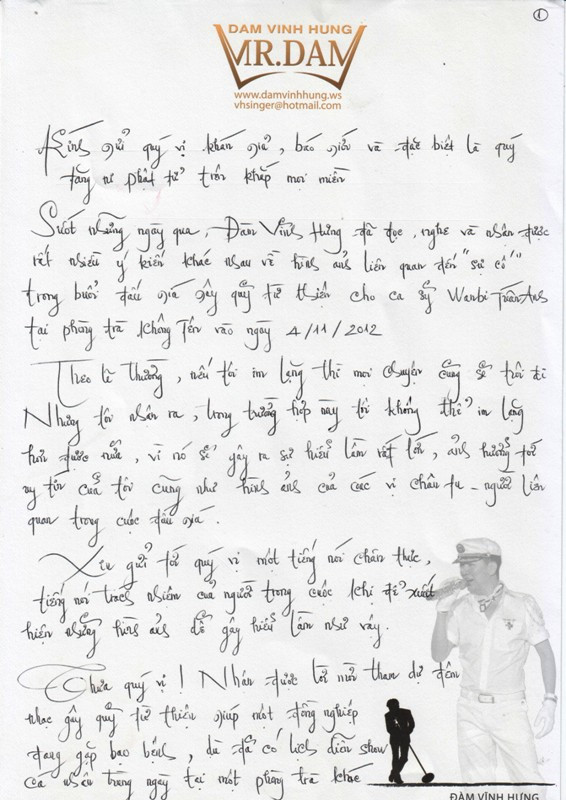 1
DAM VINH HUNG
MR.DAM
www.damvinhhung.ws
vhsinger@hotmail.com
Kính gửi quý vị khán giả, báo giới và đặc biệt là quý
tăng ni phật tử trên khắp mọi miền
Suốt những ngày qua, Đàm Vĩnh Hưng đã đọc, nghe và nhận được
rất nhiều ý kiến khác nhau về hình ảnh liên quan đến "sự cố"
trong buổi đấu giá gây quỹ từ thiện cho ca sỹ Wanbi Tuấn Anh
tại phòng trà Không Tên vào ngày 4/11/2012
Theo lẽ thường, nếu tôi im lặng thì mọi chuyện cũng sẽ trôi đi
Nhưng tôi nhận ra, trong trường hợp này tôi không thể im lặng
hơn được nữa, vì nó sẽ gây ra sự hiểu lầm rất lớn, ảnh hưởng tới
uy tín của tôi cũng như hình ảnh của các vị chân tu - người liên
quan trong cuộc đấu giá.
Xin gửi tới quý vị một tiếng nói chân thực,
tiếng nói trách nhiệm của người trong cuộc khi để xuất
hiện những hình ảnh dễ gây hiểu lầm như vậy.
Thưa quý vị! Nhận được lời mời tham dự đêm
nhạc gây quỹ từ thiện giúp một đồng nghiệp
đang gặp bạo bệnh, dù đã có lịch diễn show
cá nhân trong ngày tại một phòng trà khác
ĐÀM VĨNH HƯNG